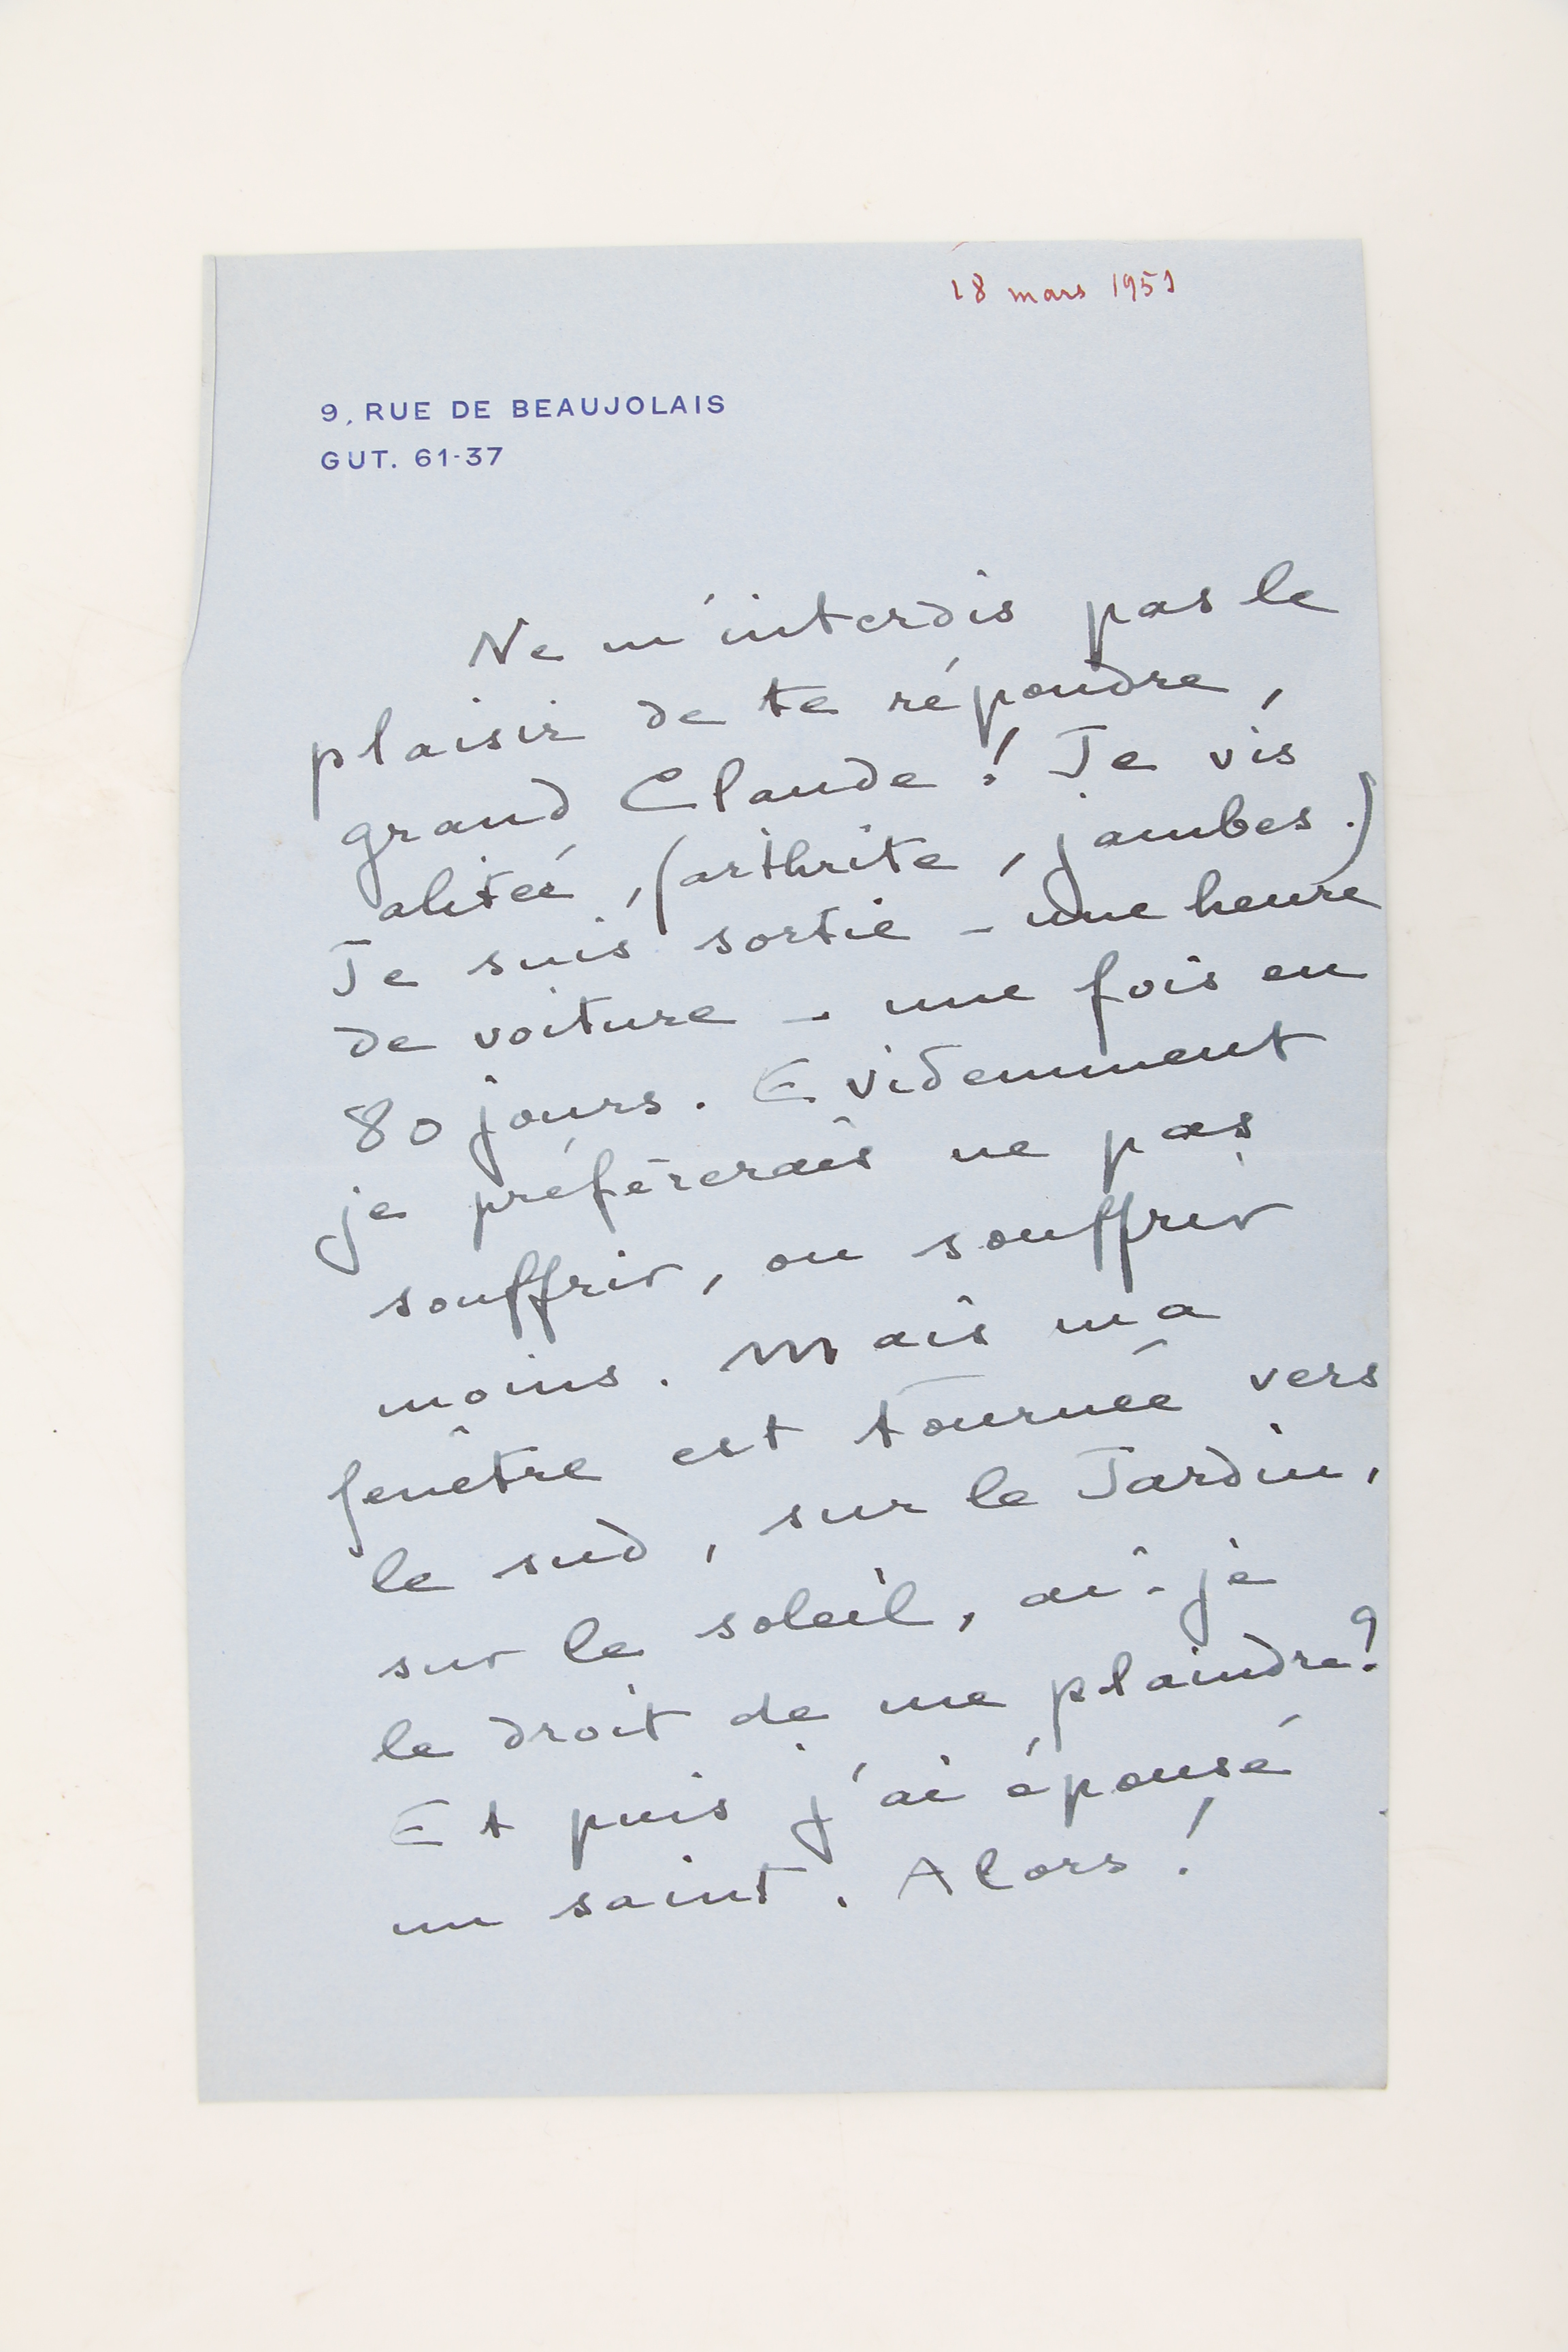 18 mars 1951
9, RUE DE BEAUJOLAIS
GUT. 61-37
Ne m'interdis pas le
plaisir de te répondre,
grand Claude ! Je vis
alitée, (arthrite, jambes.)
Je suis sortie - une heure
de voiture - une fois en
80 jours. Evidemment
je préférerais ne pas
souffrir, ou souffrir
moins. Mais ma
fenêtre est tournée vers
le sud, sur le Jardin,
sur le soleil, ai-je
le droit de me plaindre?
Et puis j'ai épousé
un saint. Alors !